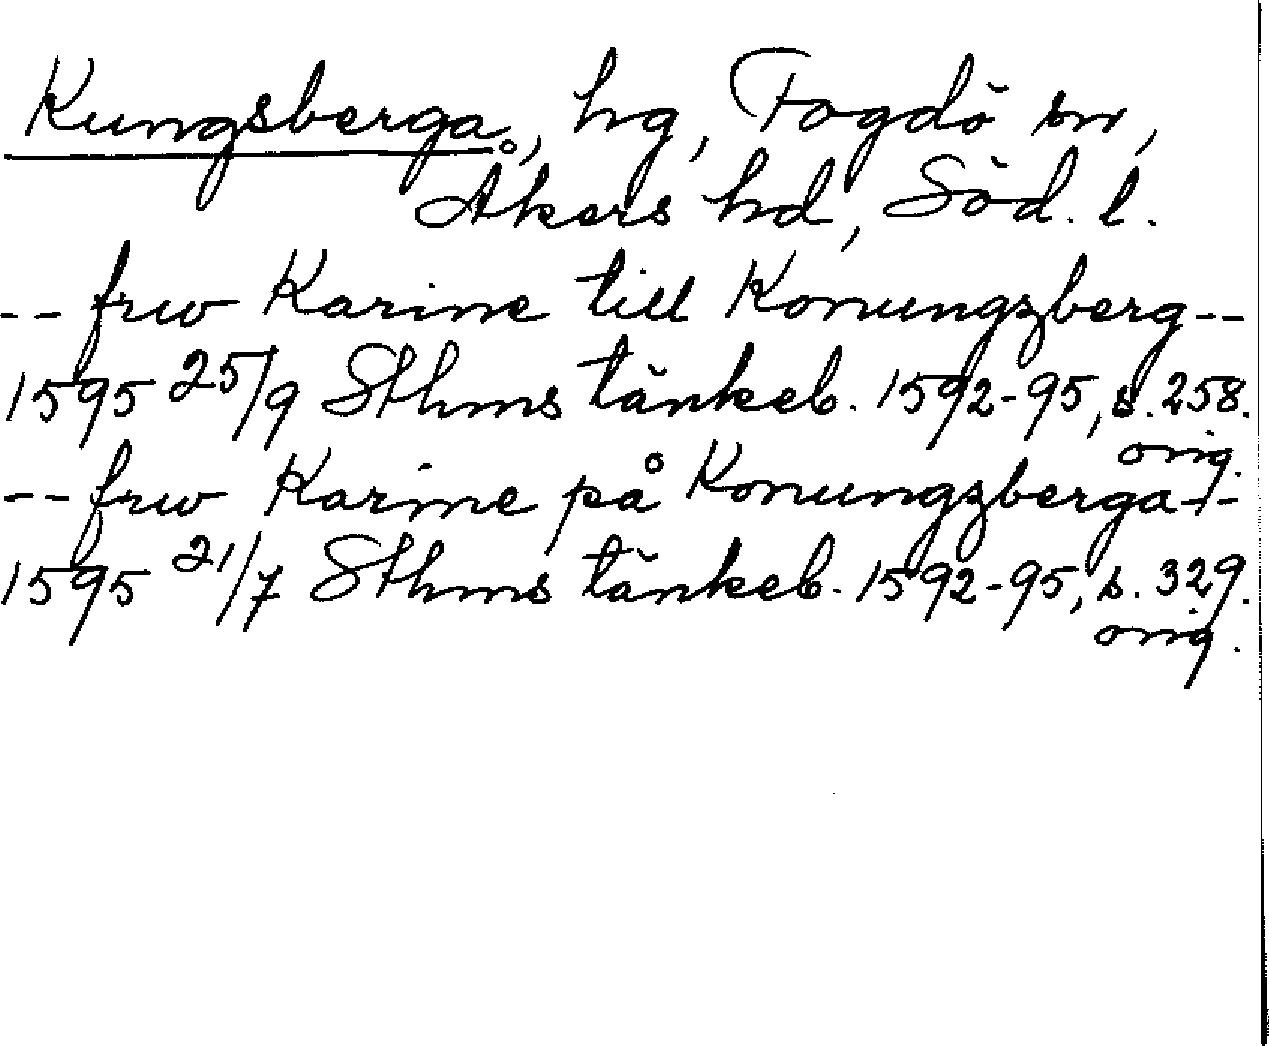 Kungsberga, hg, Fogdö sn,
Åkers hd, Söd. l.
-- frw Karine till Konungzberg --
1595 25/9 Sthms tänkeb. 1592-95, s. 258.
orig.
-- frw Karine på Konungzberga --
1595 21/7 Sthms tänkeb. 1592-95, s. 329.
orig.